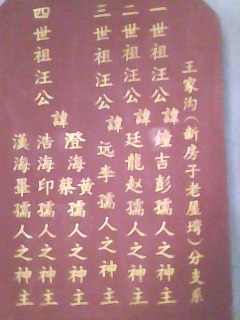 王家沟(新房子老屋塆)分支系
一世祖汪公諱鐘吉彭孺人之神主
二世祖汪公諱廷龍赵孺人之神主
三世祖汪公諱远李孺人之神主
四世祖汪公諱
澄海黄蔡孺人之神主
浩海印孺人之神主
漢海畢孺人之神主